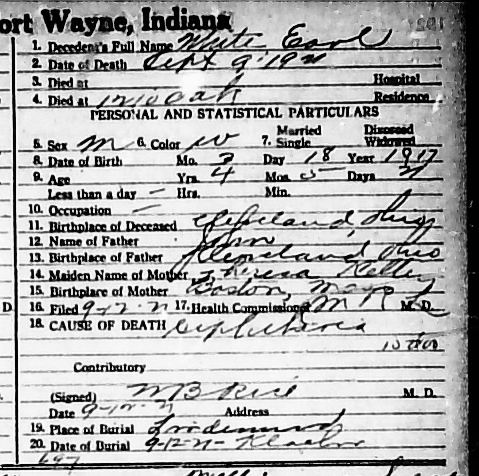 ort Wayne, Indiana
1. Decedent's Full Name White Earl
2. Date of Death Sept 9-1921
3. Died at Hospital
4. Died at 1210 Oak Residence
PERSONAL AND STATISTICAL PARTICULARS
Married Divorced
5. Sex M 6. Color W 7. Single Widowed
8. Date of Birth Mo. 3 Day 18 Year 1917
9. Age Yrs. 4 Mos. 5 Days
Less than a day — Hrs. Min.
10. Occupation —
11. Birthplace of Deceased Cleveland, Ohio
12. Name of Father John
13. Birthplace of Father Cleveland Ohio
14. Maiden Name of Mother Theresa Kelley
15. Birthplace of Mother Boston, Mass
D. 16. Filed 9-12-21 17. Health Commissioner M. D.
18. CAUSE OF DEATH Diphtheria
Contributory
(Signed) M. D.
Date 9-12-21 Address
19. Place of Burial Lindenwood
20. Date of Burial 9-12-21- Klaehn